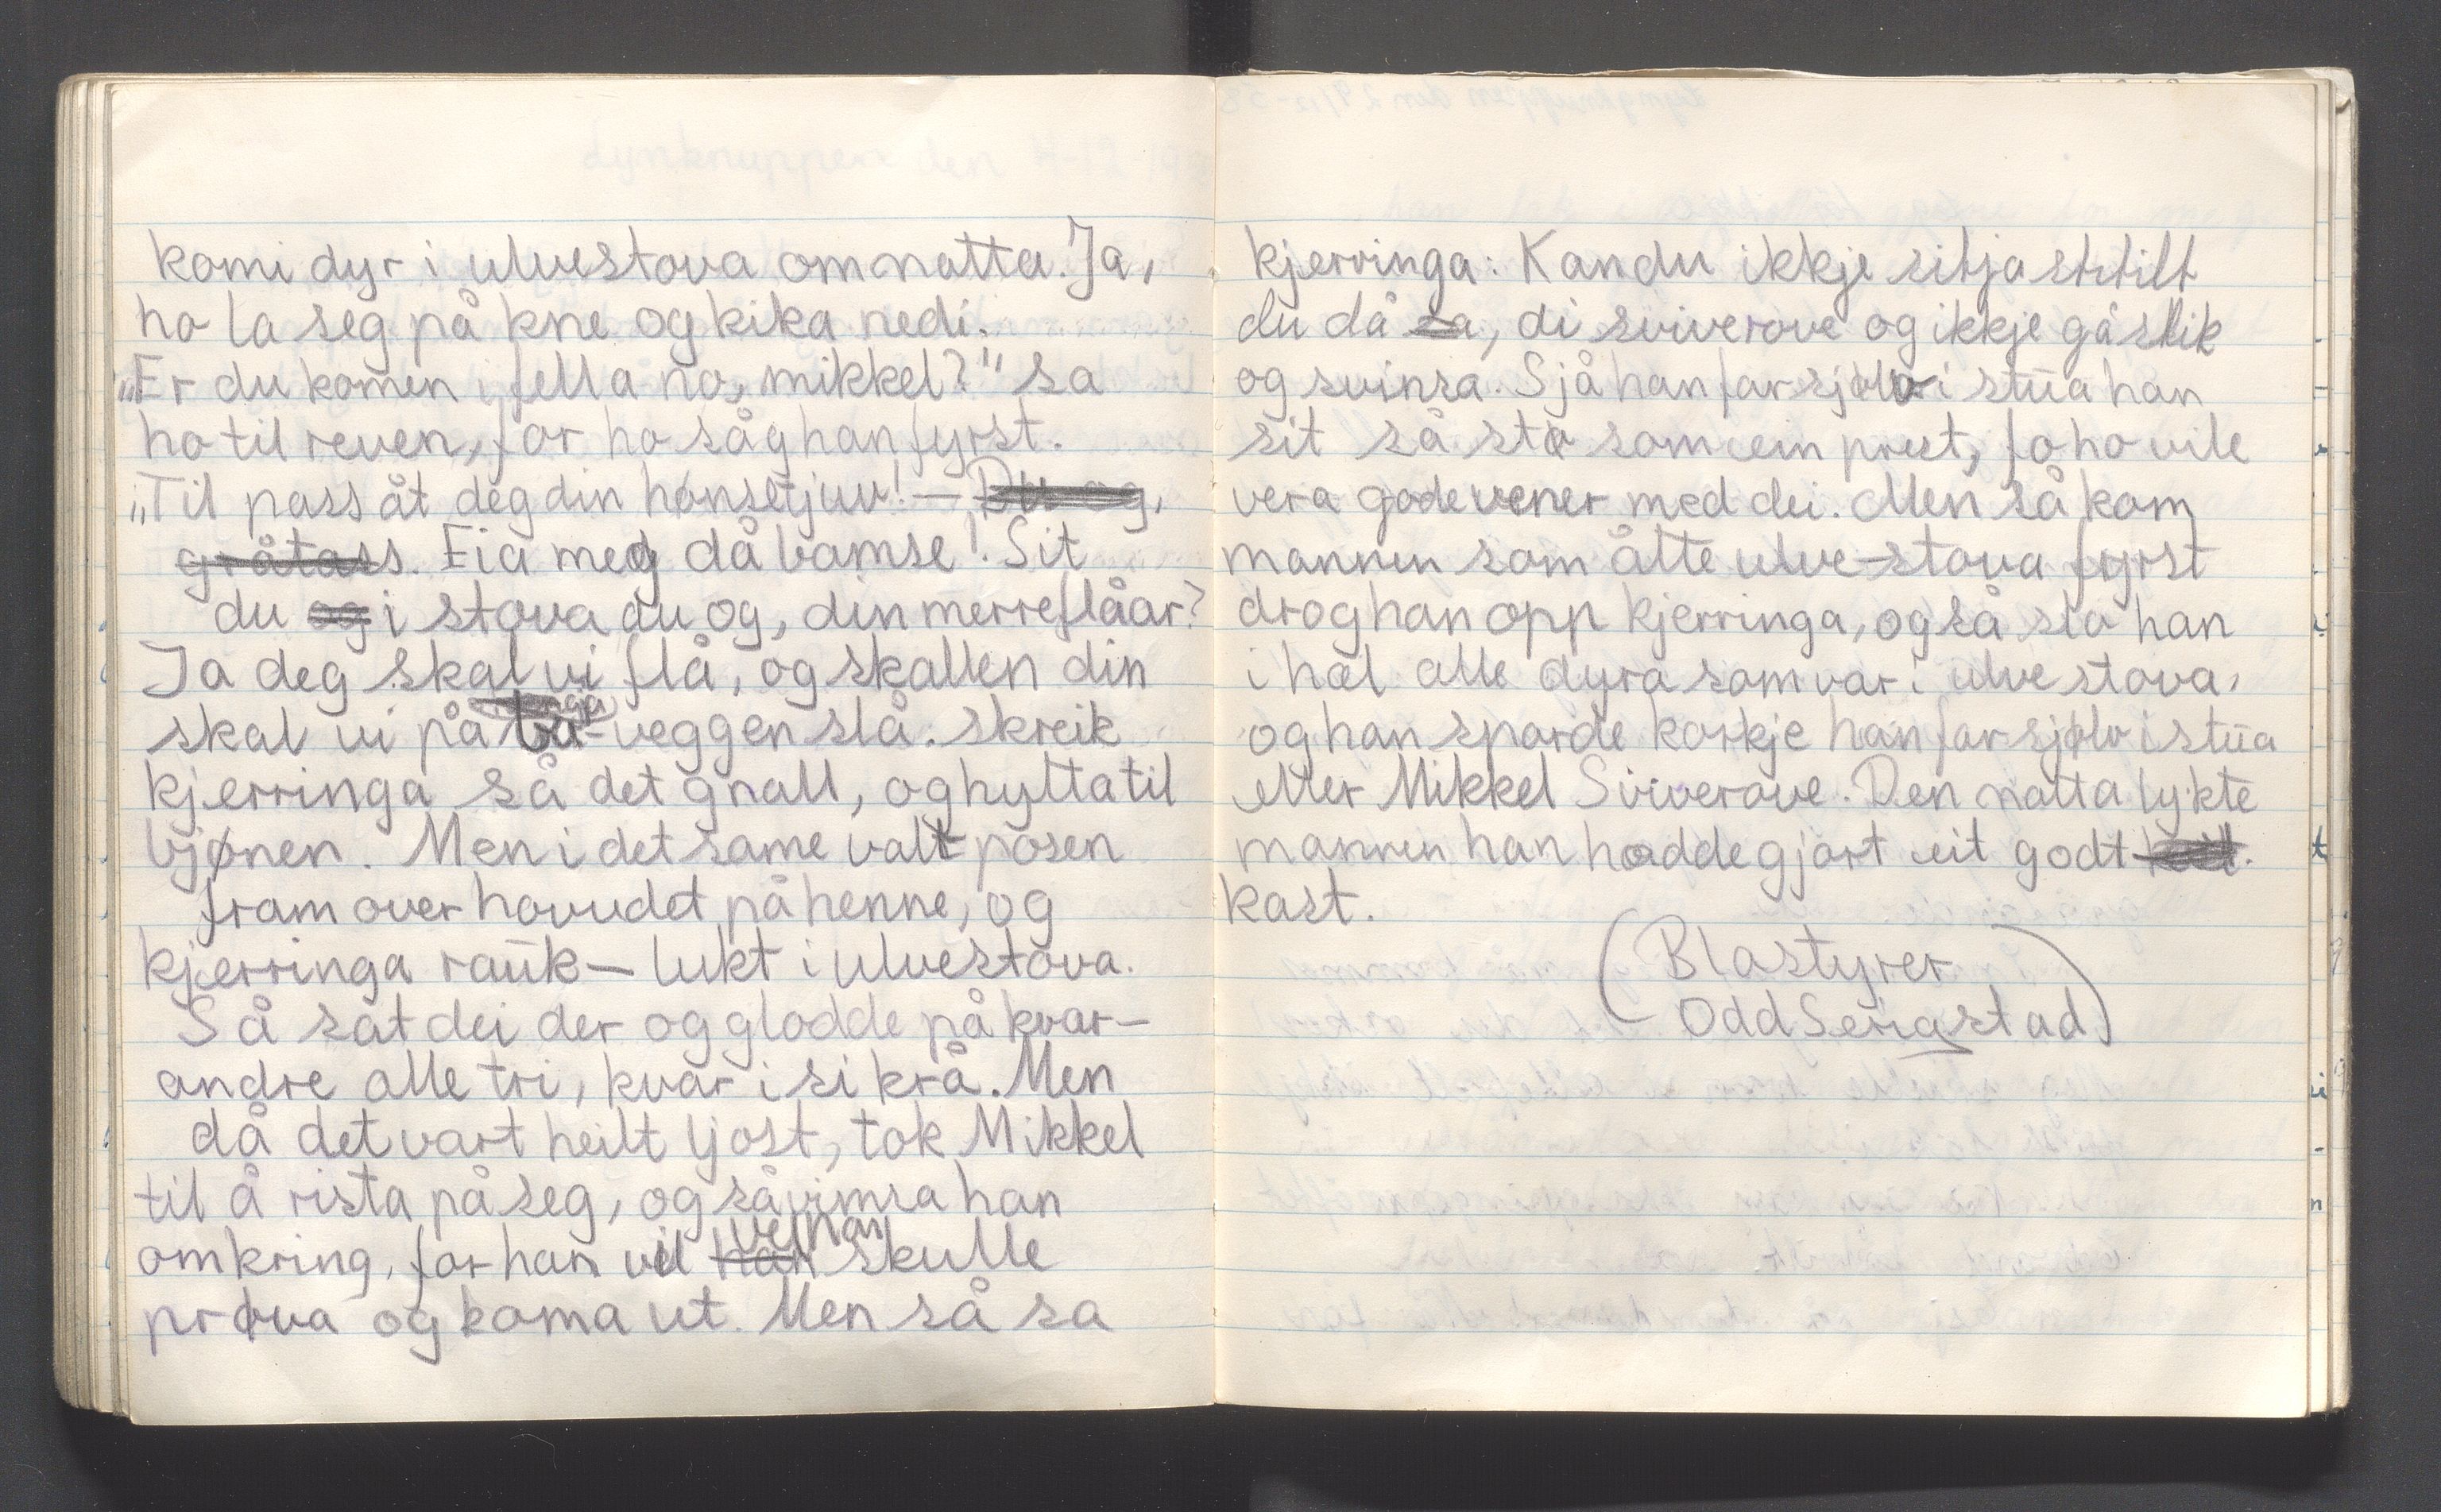 komi dyr i ulvestova om natta. Ja,
ho la seg på kne og kika nedi.
„Er du komen i fella no, mikkel?" sa
ho til reven, for ho såg han fyrst.
„Til pass åt deg din hønsetjuv! — Du og,
gråtass. Eia meg då bamse! Sit
du og i stova du og, din merreflåar?
Ja deg skal vi flå, og skallen din
skal vi på veggen slå. skreik
kjerringa så det gnall, og hytta til
bjønen. Men i det same valt posen
fram over hovudet på henne, og
kjerringa rauk — lukt i ulvestova.
Så sat dei der og glodde på kvar-
andre alle tri, kvar i si krå. Men
då det vart heilt ljost, tok Mikkel
til å rista på seg, og så vimsa han
vel han
omkring, for han vil han skulle
prøva og koma ut. Men så sa
kjerringa: Kan du ikkje sitja sttilt
du då sa, di sviverove og ikkje gå slik
og svinsa. Sjå han far sjølv i stua han
sit så stø som ein prest, fo ho vile
vera gode vener med dei. Men så kom
mannen som åtte ulve-stova fyrst
drog han opp kjerringa, og så slo han
i hel alle dyra som var i ulvestova,
og han sparde korkje han far sjølv i stua
eller Mikkel Sviverove. Den natta lykte
mannen han hadde gjort eit godt
kast.
(Blastyrer
Odd Seigstad)